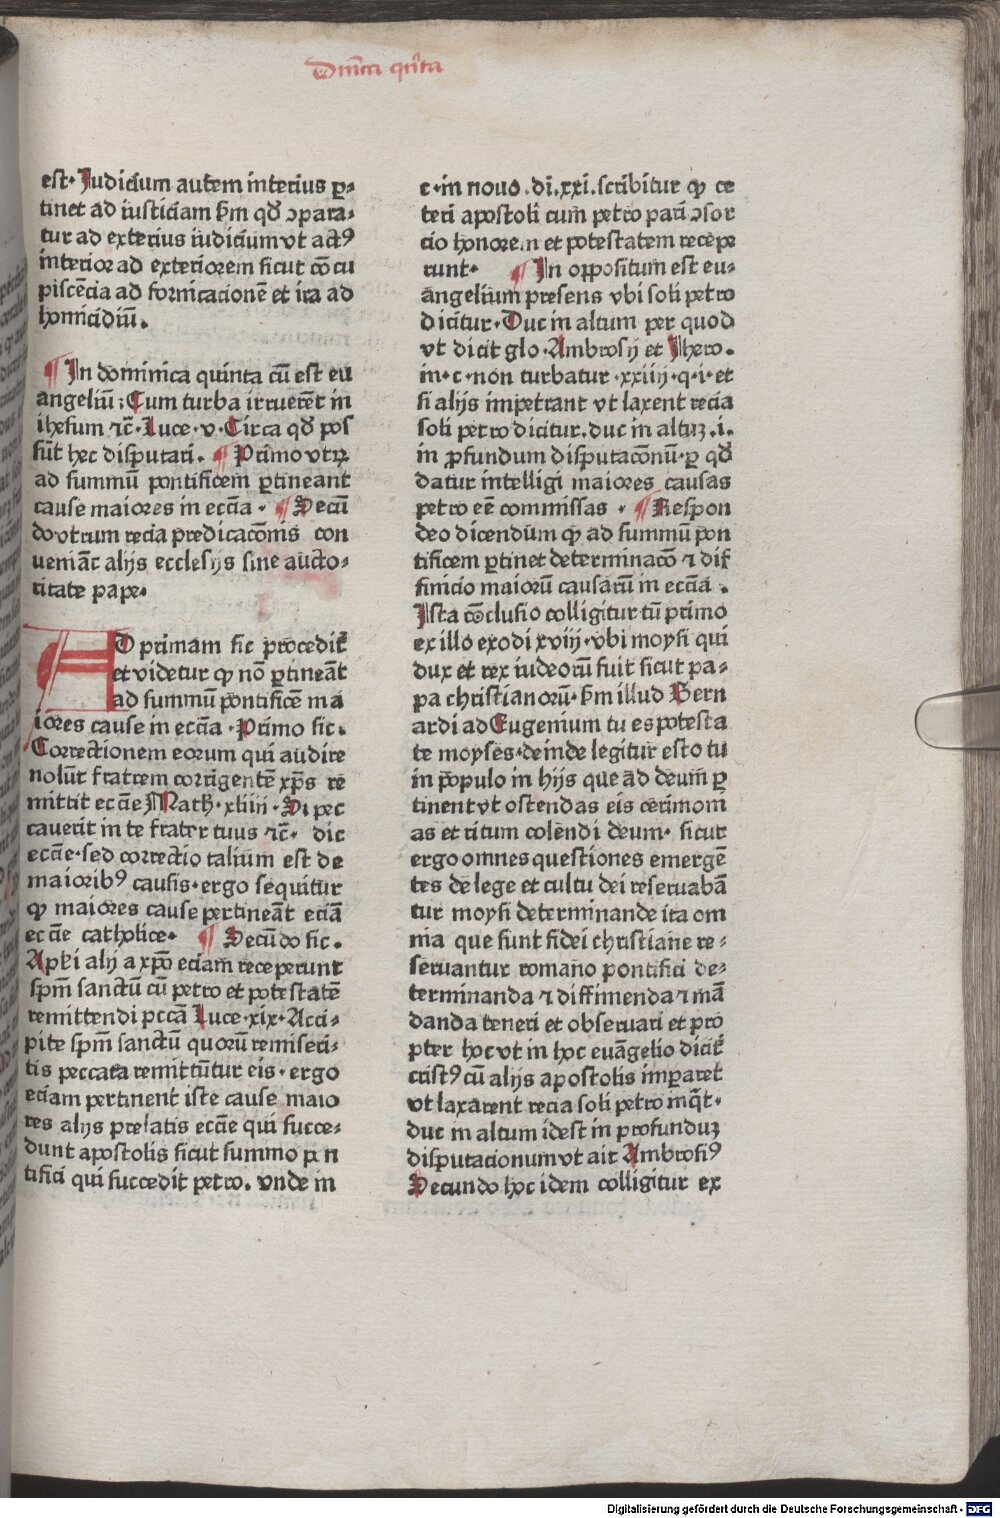 Dn̄ica qn̄ta
est· Judiciū autem interius ꝑ⸗
tinet ad iusticiam ẜm qd̓ ↄpara⸗
tur ad exterius iudicium vt actꝰ
interior ad exteriorem sicut cōcu
piscēcia ad fornicacionē et ira ad
homicidiū.
¶ In dominica quinta cū est eu
angeliū: Cum turba irruerēt in
ihesum ⁊c̄· Luce·v· Circa qd̓ pos
sūt hec disputari. ¶ Primo vtꝝ
ad summū pontificem ꝑtineant
cause maiores in ecc̄ia· ¶ Secū
do vtrum recia predicacōnis con
ueniāt alijs ecclesijs sine aucto⸗
ritate pape·
AD primam sic procedit̄
et videtur ꝙ nō ꝑtineāt
ad summū pontificē ma
iores cause in ecc̄ia· Primo sic·
Correctionem eorum qui audire
nolūt fratrem corrigentē xp̄s re
mittit ecc̄ie Math̄·xliiii· Si pec
cauerit in te frater tuus ⁊c̄· dic
ecc̄ie·sed correctio talium est de
maioribꝰ causis·ergo sequitur
ꝙ maiores cause pertineāt eciā
ecc̄ie catholice· ¶ Secūdo sic.
Apl̄i alij a xp̄o eciam receperunt
sp̄m sanctū cū petro et potestatē
remittendi pcc̄ā Luce·xix· Acci⸗
pite sp̄m sanctū quorū remiseri⸗
tis peccata remittūtur eis·ergo
eciam pertinent iste cause maio
res alijs prelatis ecc̄ie qui succe⸗
dunt apostolis sicut summo pōn
tifici qui succedit petro. vnde in
c·in nouo.di.xxi.scribitur ꝙ ce
teri apostoli cum petro pari ↄsor
cio honorem et potestatem recepe
runt· ¶ In oppositum est eu⸗
angelium presens vbi soli petro
dicitur· Duc in altum per quod
vt dicit glo·Ambrosij et Jhero.
in·c·non turbatur·xxiiij·q·i·et
si alijs impetrant vt laxent recia
soli petro dicitur.duc in altuꝫ.i.
in ꝓfundum disputacōnū·ꝑ qd̓
datur intelligi maiores causas
petro eē commissas· ¶ Respon
deo dicendum ꝙ ad summū pon
tificem ꝑtinet determinacō ⁊ dif
finicio maiorū causarū in ecc̄ia.
Ista cōclusio colligitur tū primo
ex illo exodi xviij·vbi moysi qui
dux et rex iudeorū fuit sicut pa⸗
pa christianorū·ẜm illud Bern
ardi ad Eugenium tu es potesta
te moyses·deinde legitur esto tu
in populo in hijs que ad deum ꝑ
tinent vt ostendas eis cerimoni
as et ritum colendi deum· sicut
ergo omnes questiones emergē
tes de lege et cultu dei reseruabā
tur moysi determinande ita om
nia que sunt fidei christiane re⸗
seruantur romano pontifici de⸗
terminanda ⁊ diffinienda ⁊ mā
danda teneri et obseruari et pro
pter hoc vt in hoc euāgelio dicit̄
cristꝰ cū alijs apostolis imꝑaret
vt laxarent recia soli petro inq̄t·
duc in altum idest in profunduꝫ
disputacionum vt ait Ambrosiꝰ
Secundo hoc idem colligitur ex
Digitalisierung gefördert durch die Deutsche Forschungsgemeinschaft - DFG